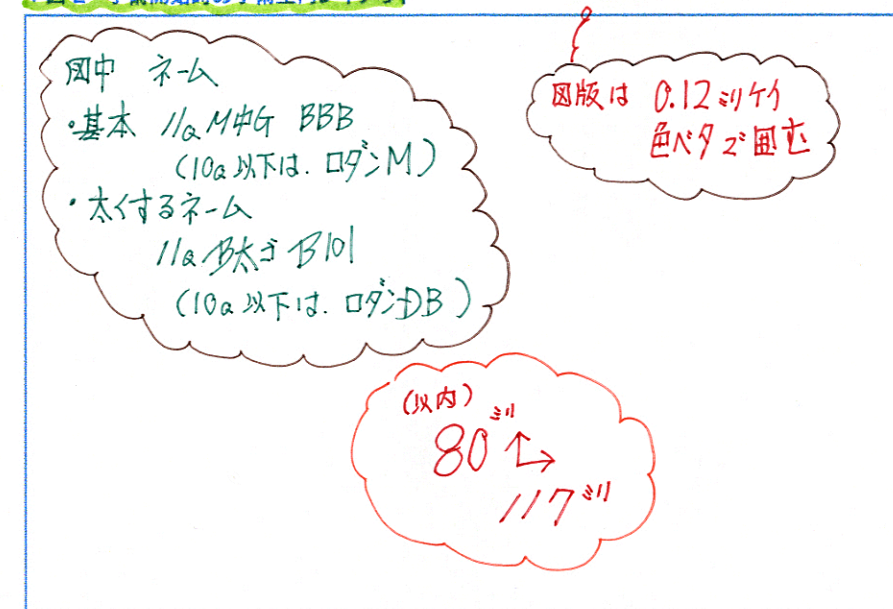 図中 ネーム
・基本 11Q M中G BBB
(10Q以下は.ロダンM)
・太くするネーム
11Q B太ゴ B101
(10Q以下は.ロダンDB)
図版は 0.12ミリケイ
色ベタで囲む
(以内)
80ミリ ↑→
117ミリ